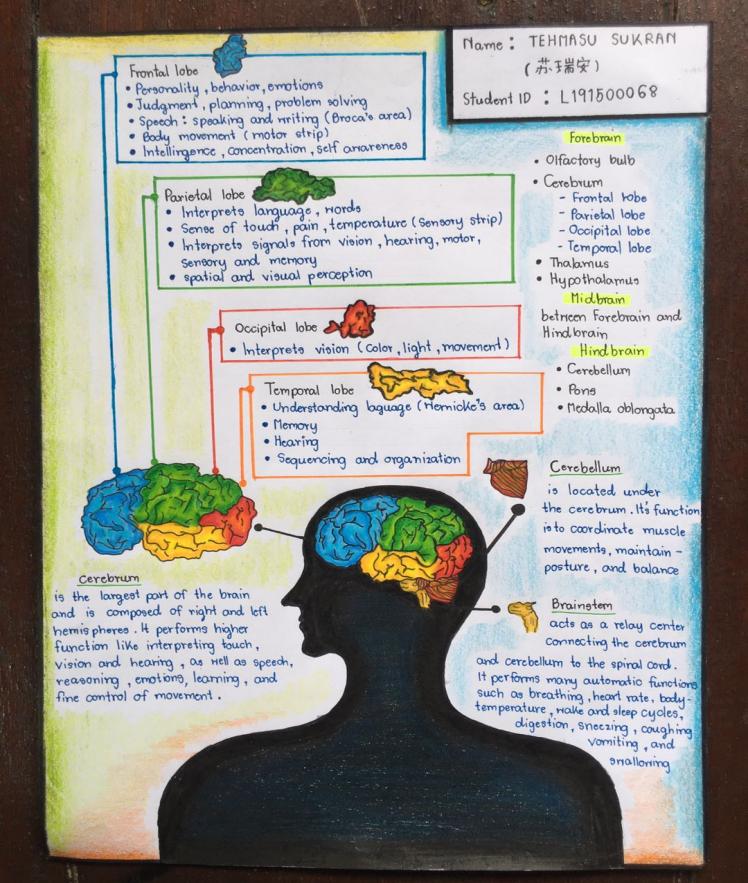 Name : TEHMASU SUKRAN
(苏瑞安)
Student ID : L191500068
Frontal lobe
• Personality, behavior, emotions
• Judgment, planning, problem solving
• Speech : speaking and writing (Broca's area)
• Body movement (motor strip)
• Intellingence, concentration, self awareness
Parietal lobe
• Interprets language, words
• Sense of touch, pain, temperature (sensory strip)
• Interprets signals from vision, hearing, motor,
sensory and memory
• spatial and visual perception
Occipital lobe
• Interprets vision (color, light, movement)
Temporal lobe
• Understanding laguage (Wernicke's area)
• Memory
• Hearing
• Sequencing and organization
Forebrain
• Olfactory bulb
• Cerebrum
- Frontal lobe
- Parietal lobe
- Occipital lobe
- Temporal lobe
• Thalamus
• Hypothalamus
Midbrain
between Forebrain and
Hindbrain
Hindbrain
• Cerebellum
• Pons
• Medalla oblongata
Cerebellum
is located under
the cerebrum. It's function
is to coordinate muscle
movements, maintain -
posture, and balance
Cerebrum
is the largest part of the brain
and is composed of right and left
hemispheres. It performs higher
function like interpreting touch,
vision and hearing, as well as speech,
reasoning, emotions, learning, and
fine control of movement.
Brainstem
acts as a relay center
connecting the cerebrum
and cerebellum to the spinal cord.
It performs many automatic functions
such as breathing, heart rate, body-
temperature, wake and sleep cycles,
digestion, sneezing, coughing
vomiting, and
swallowing